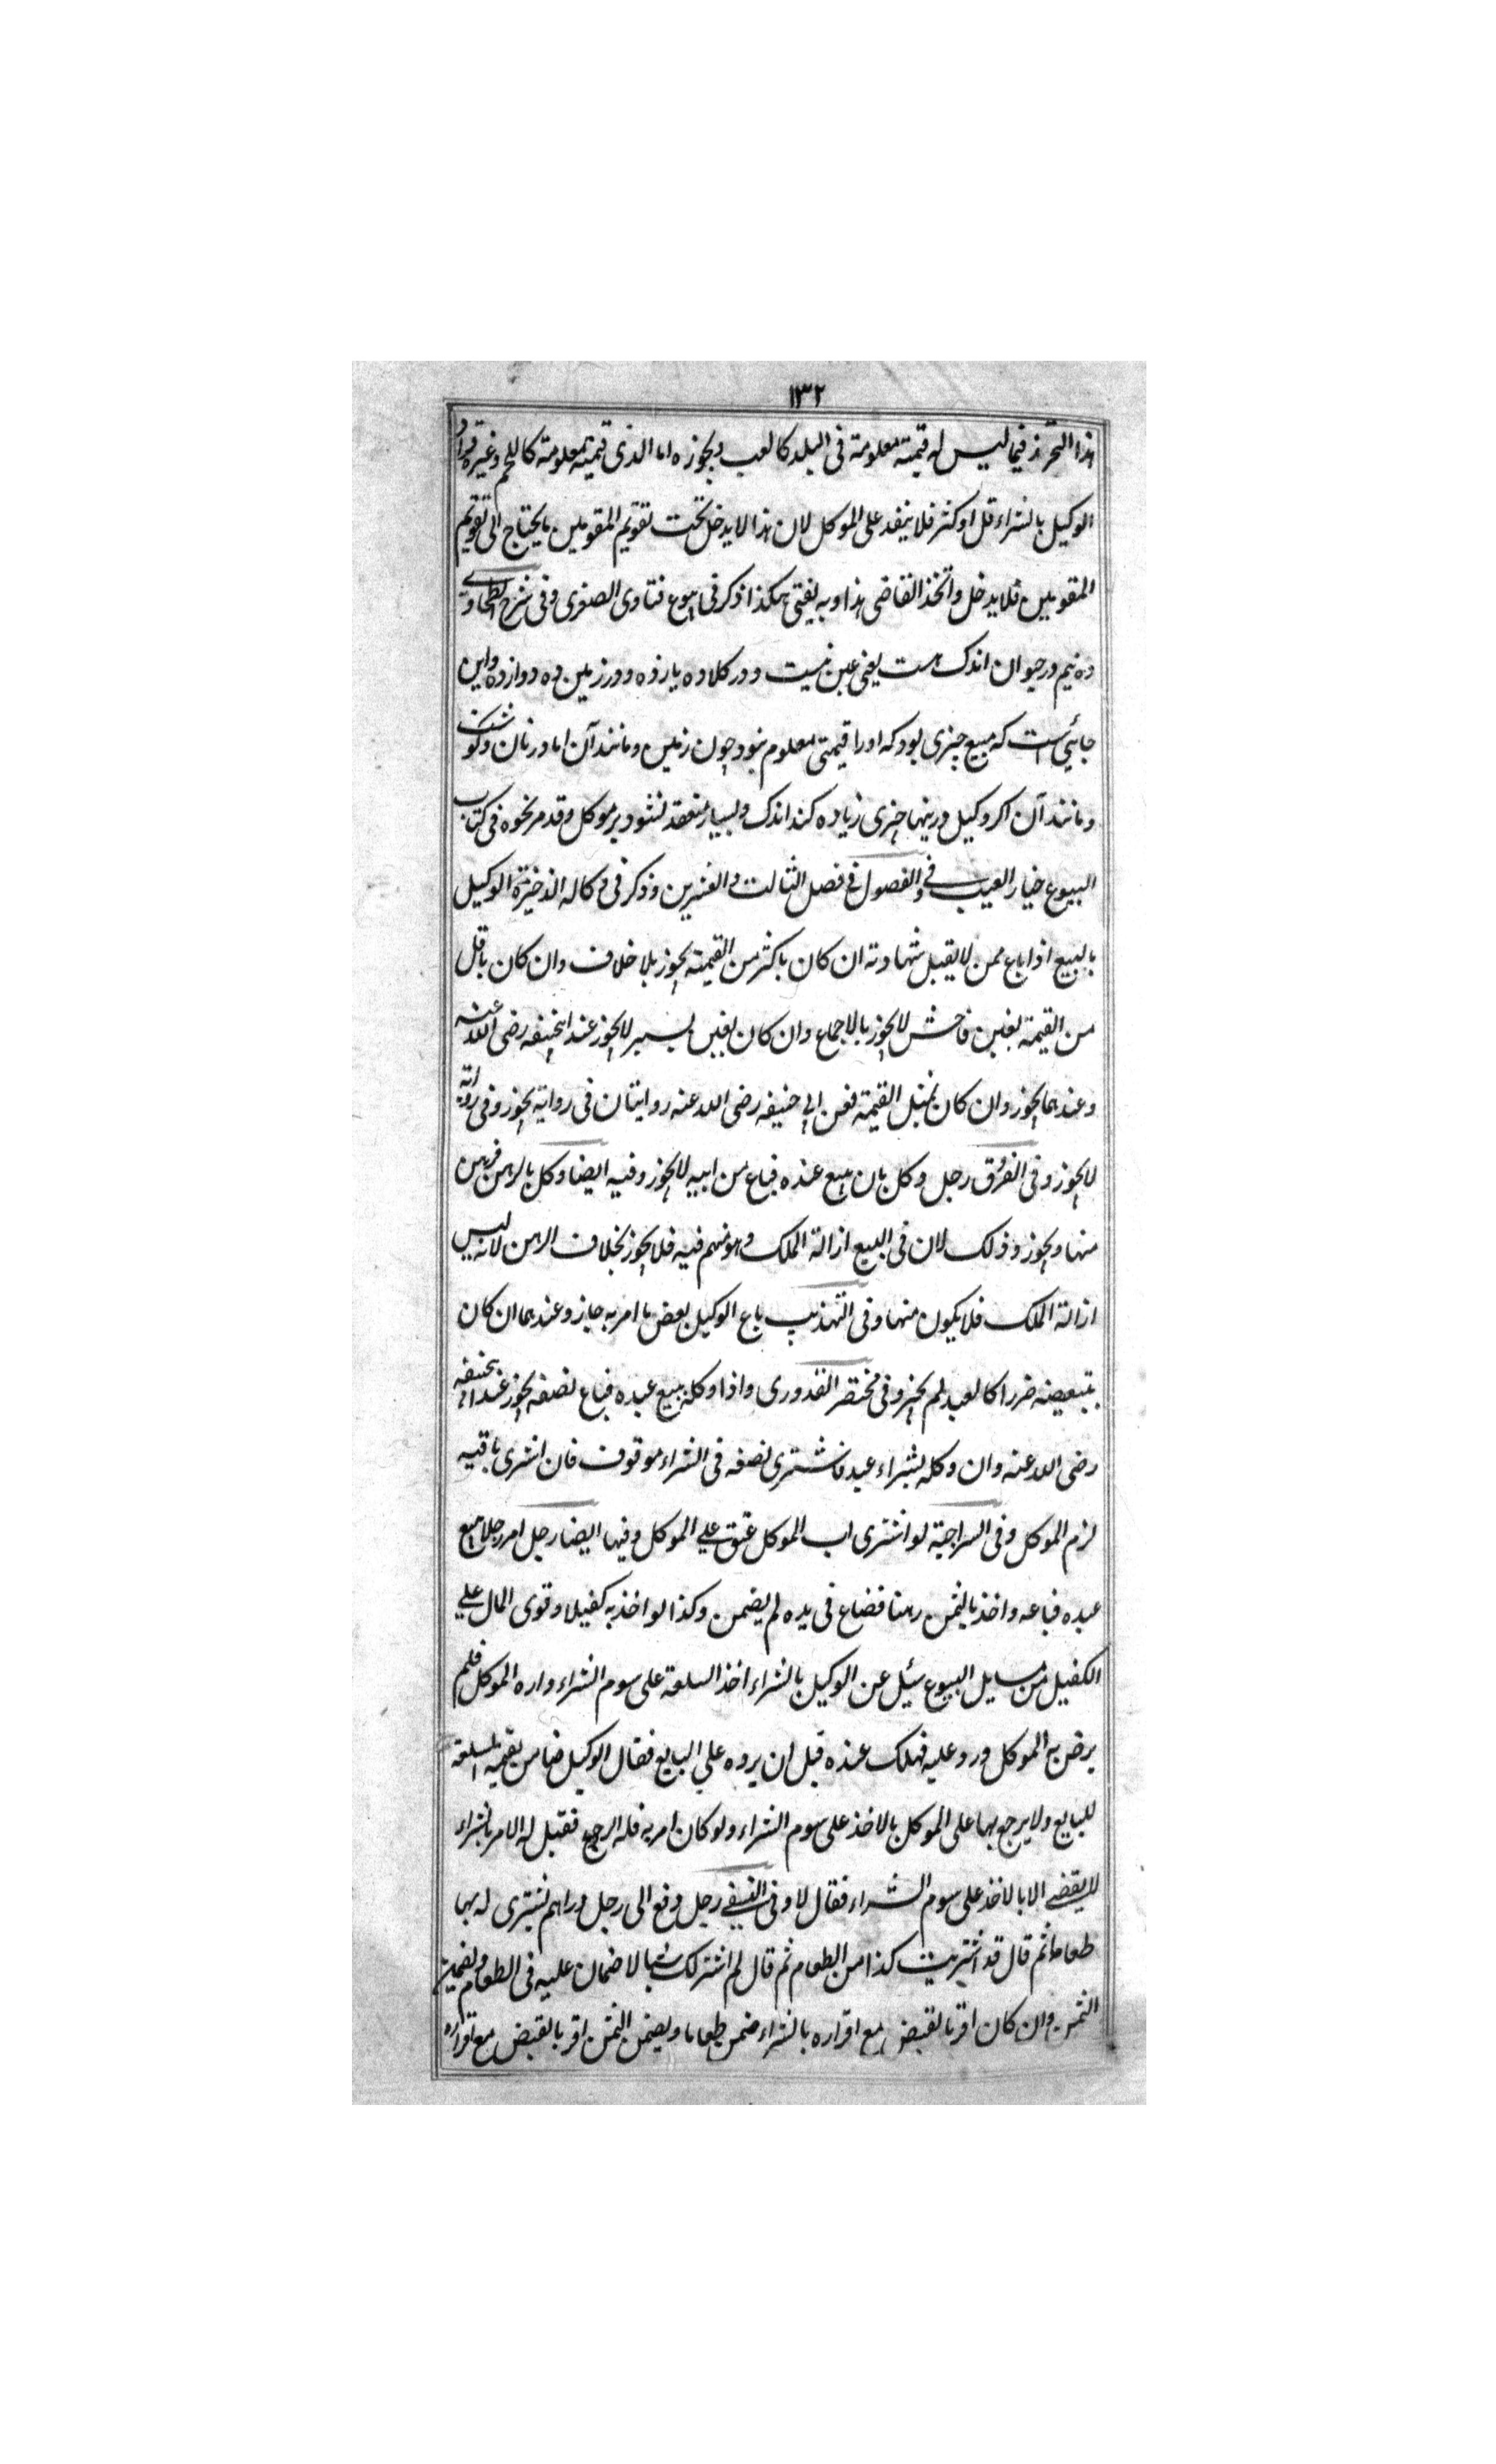 ١٣٢
هذا التحرز فيما ليس له قيمته معلومة فى البلد كالعبد ويجوزه اما الذى قيمته معلومة كاللحم وغيره فزاد
الوكيل بالشراء قل او كثر فلا ينفد على الموكل لان هذا لا يدخل تحت تقويم المقومين ما يحتاج الى تقويم
المقومين فلا يدخل واتخذ القاضى هذا وبه يفتى هكذا ذكر فى بيوع فتاوى الصغرى وفى شرح الطحاوى
ده نيم در حيوان اندك است يعنى غبن نيست و در كلا ده يازده و در زمين ده دوازده واين
جائى است كه مبيع چيزى بود كه اورا قيمتى معلوم نبود چون زمين و مانند آن اما در نان وكوشت
و مانند آن اكر وكيل درينها چيزى زياده كند اندك وبسيار منعقد نشود بر موكل وقد مر نحوه فى كتاب
البيوع خيار العيب وفى الفصول فى فصل الثالث والعشرين وذكر فى وكاله الذخيرة الوكيل
بالبيع اذا باع ممن لا يقبل شهادته ان كان باكثر من القيمته يجوز بلا خلاف وان كان باقل
من القيمته بغبن فاحش لا يجوز بالاجماع وان كان بغبن يسير لا يجوز عند ابيحنيفه رضى الله عنه
وعندهما يجوز وان كان بمثل القيمته فعن ابى حنيفه رضى الله عنه روايتان فى رواية يجوز وفى رواية
لا يجوز وفى الفرق رجل وكل بان يبيع عنده فباع من ابيه لا يجوز وفيه ايضا وكل بالرهن فرهن
منها ويجوز وذلك لان فى البيع ازالة الملك وهو متهم فيه فلا يجوز بخلاف الرهن لانه ليس
ازالة الملك فلا يكون منها وفى التهذيب باع الوكيل بعض ما امر به جاز وعندهما ان كان
بتبعيضه ضررا كالعبد لم يجز وفى مختصر القدورى واذا وكله ببيع عبده فباع نصفه يجوز عند ابيحنيفه
رضى الله عنه وان وكله بشراء عبد فاشترى نصفه فى الشراء موقوف فان اشترى باقيه
لزم الموكل وفى السراجية لو اشترى اب الموكل عتق على الموكل وفيها ايضا رجل امر رجلا ببيع
عبده فباعه واخذ بالثمن رهنا فضاع فى يده لم يضمن وكذا لو اخذ به كفيلا وتوى المال على
الكفيل من مسايل البيوع سئل عن الوكيل بالشراء اخذ السلعة على سوم الشراء واره الموكل فلم
يرض به الموكل ورد عليه فهلك عنده قبل ان يرده على البايع فقال الوكيل ضامن بقيمة السلعة
للبايع ولا يرجع بها على الموكل بالاخذ على سوم الشراء ولو كان امر به فله الرجوع فقيل له الامر بالشراء
لا يقضى الا بالاخذ على سوم الشراء فقال لا وفى النسفى رجل دفع الى رجل دراهم يشترى له بها
طعاما ثم قال قد اشتريت كذا من الطعام ثم قال لم اشتر لك شيئا لا ضمان عليه فى الطعام ويضمن
الثمن وان كان اقر بالقبض مع اقراره بالشراء ضمن طعاما ويضمن الثمن اقر بالقبض مع اقراره